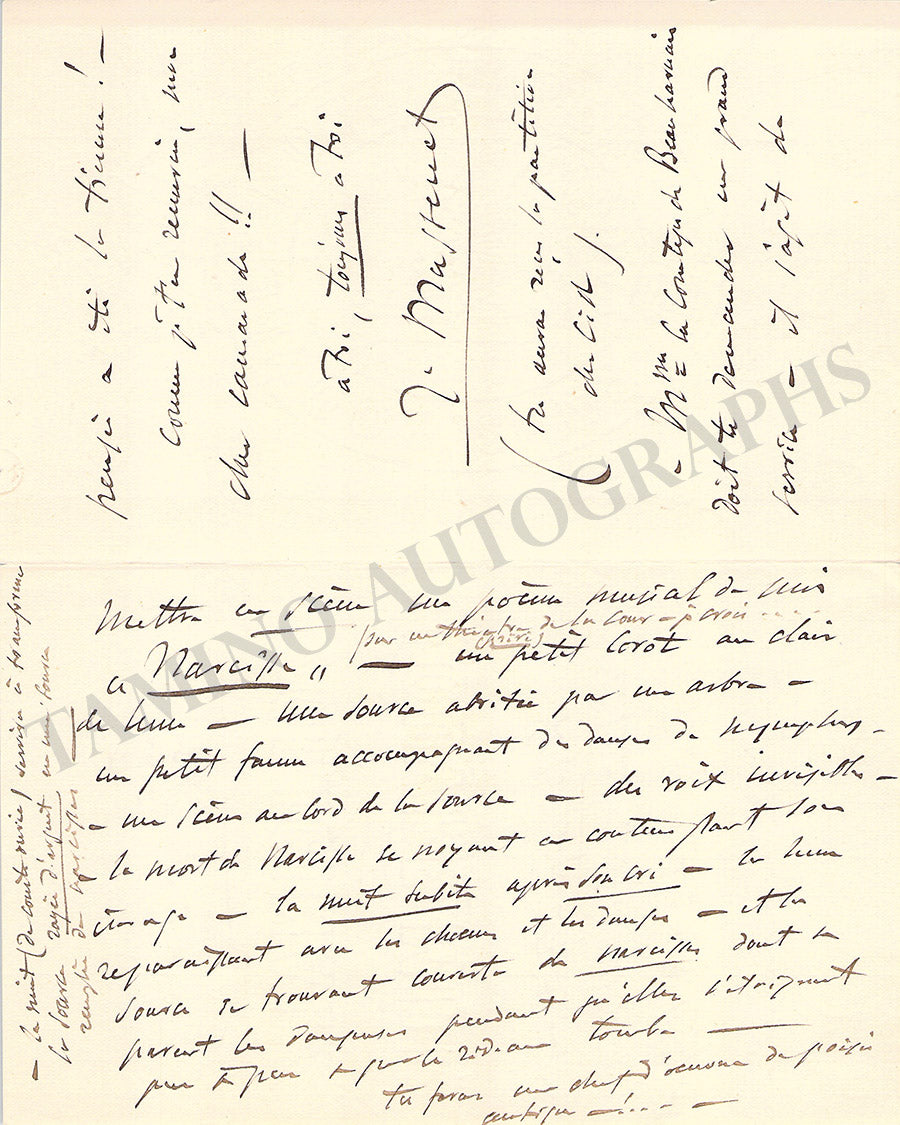 pensée a été la tienne ! —
comme je t'en remercie, mon
cher camarade !! —
à toi, toujours à toi
J. Massenet
(tu auras reçu la partition
du Cid)
— Mme la Comtesse de Beauharnais
doit te demander un grand
service — il s'agit de
mettre en scène un poème musical de moi
" Narcisse " — un petit Corot au clair
(pour un théâtre de la cour — je crois ....
(privé)
de lune — une source abritée par un arbre —
un petit faune accompagnant des danses de nymphes —
— une scène au bord de la source — des voix invisibles —
— la mort de Narcisse se noyant en contemplant son
image — la nuit subite après son cri — la lune
reparaissant avec les chœurs et les danses — et la
source se trouvant couverte de narcisses dont se
parent les danseuses pendant qu'elles s'éloignent
peu à peu et que le rideau tombe —
tu feras un chef d'œuvre de poésie
antique — !... —
— la nuit (de courte durée) servira à transformer
la source rayée d'argent en une source
remplie de narcisses
TAMINO AUTOGRAPHS